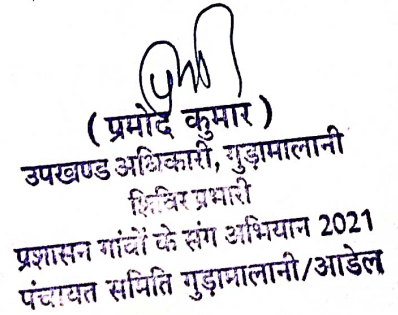 ( प्रमोद कुमार )
उपखण्ड अधिकारी, गुड़ामालानी
शिविर प्रभारी
प्रशासन गांवों के संग अभियान 2021
पंचायत समिति गुड़ामालानी/आडेल